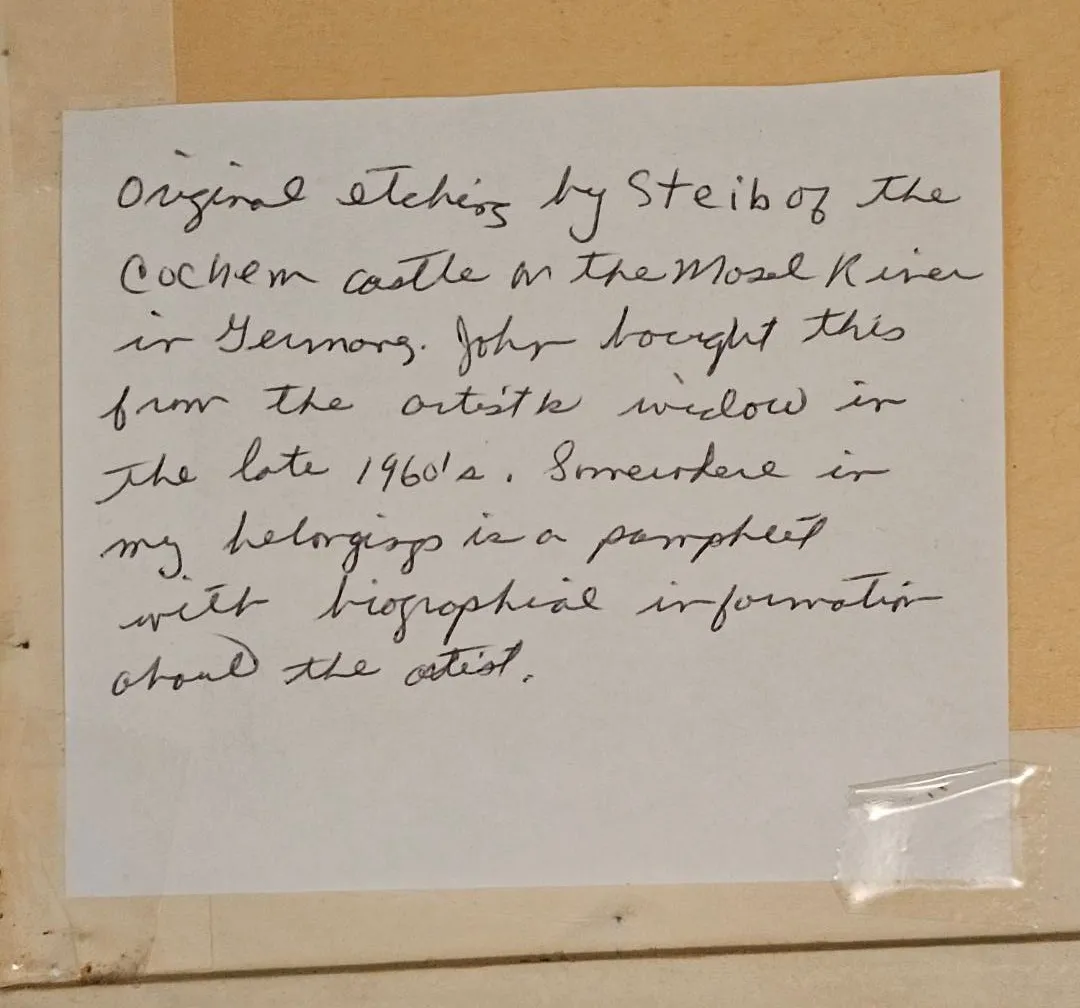 Original etching by Steib of the
Cochem castle on the Mosel River
in Germany. John bought this
from the artist's widow in
the late 1960's. Somewhere in
my belongings is a pamphlet
with biographical information
about the artist.